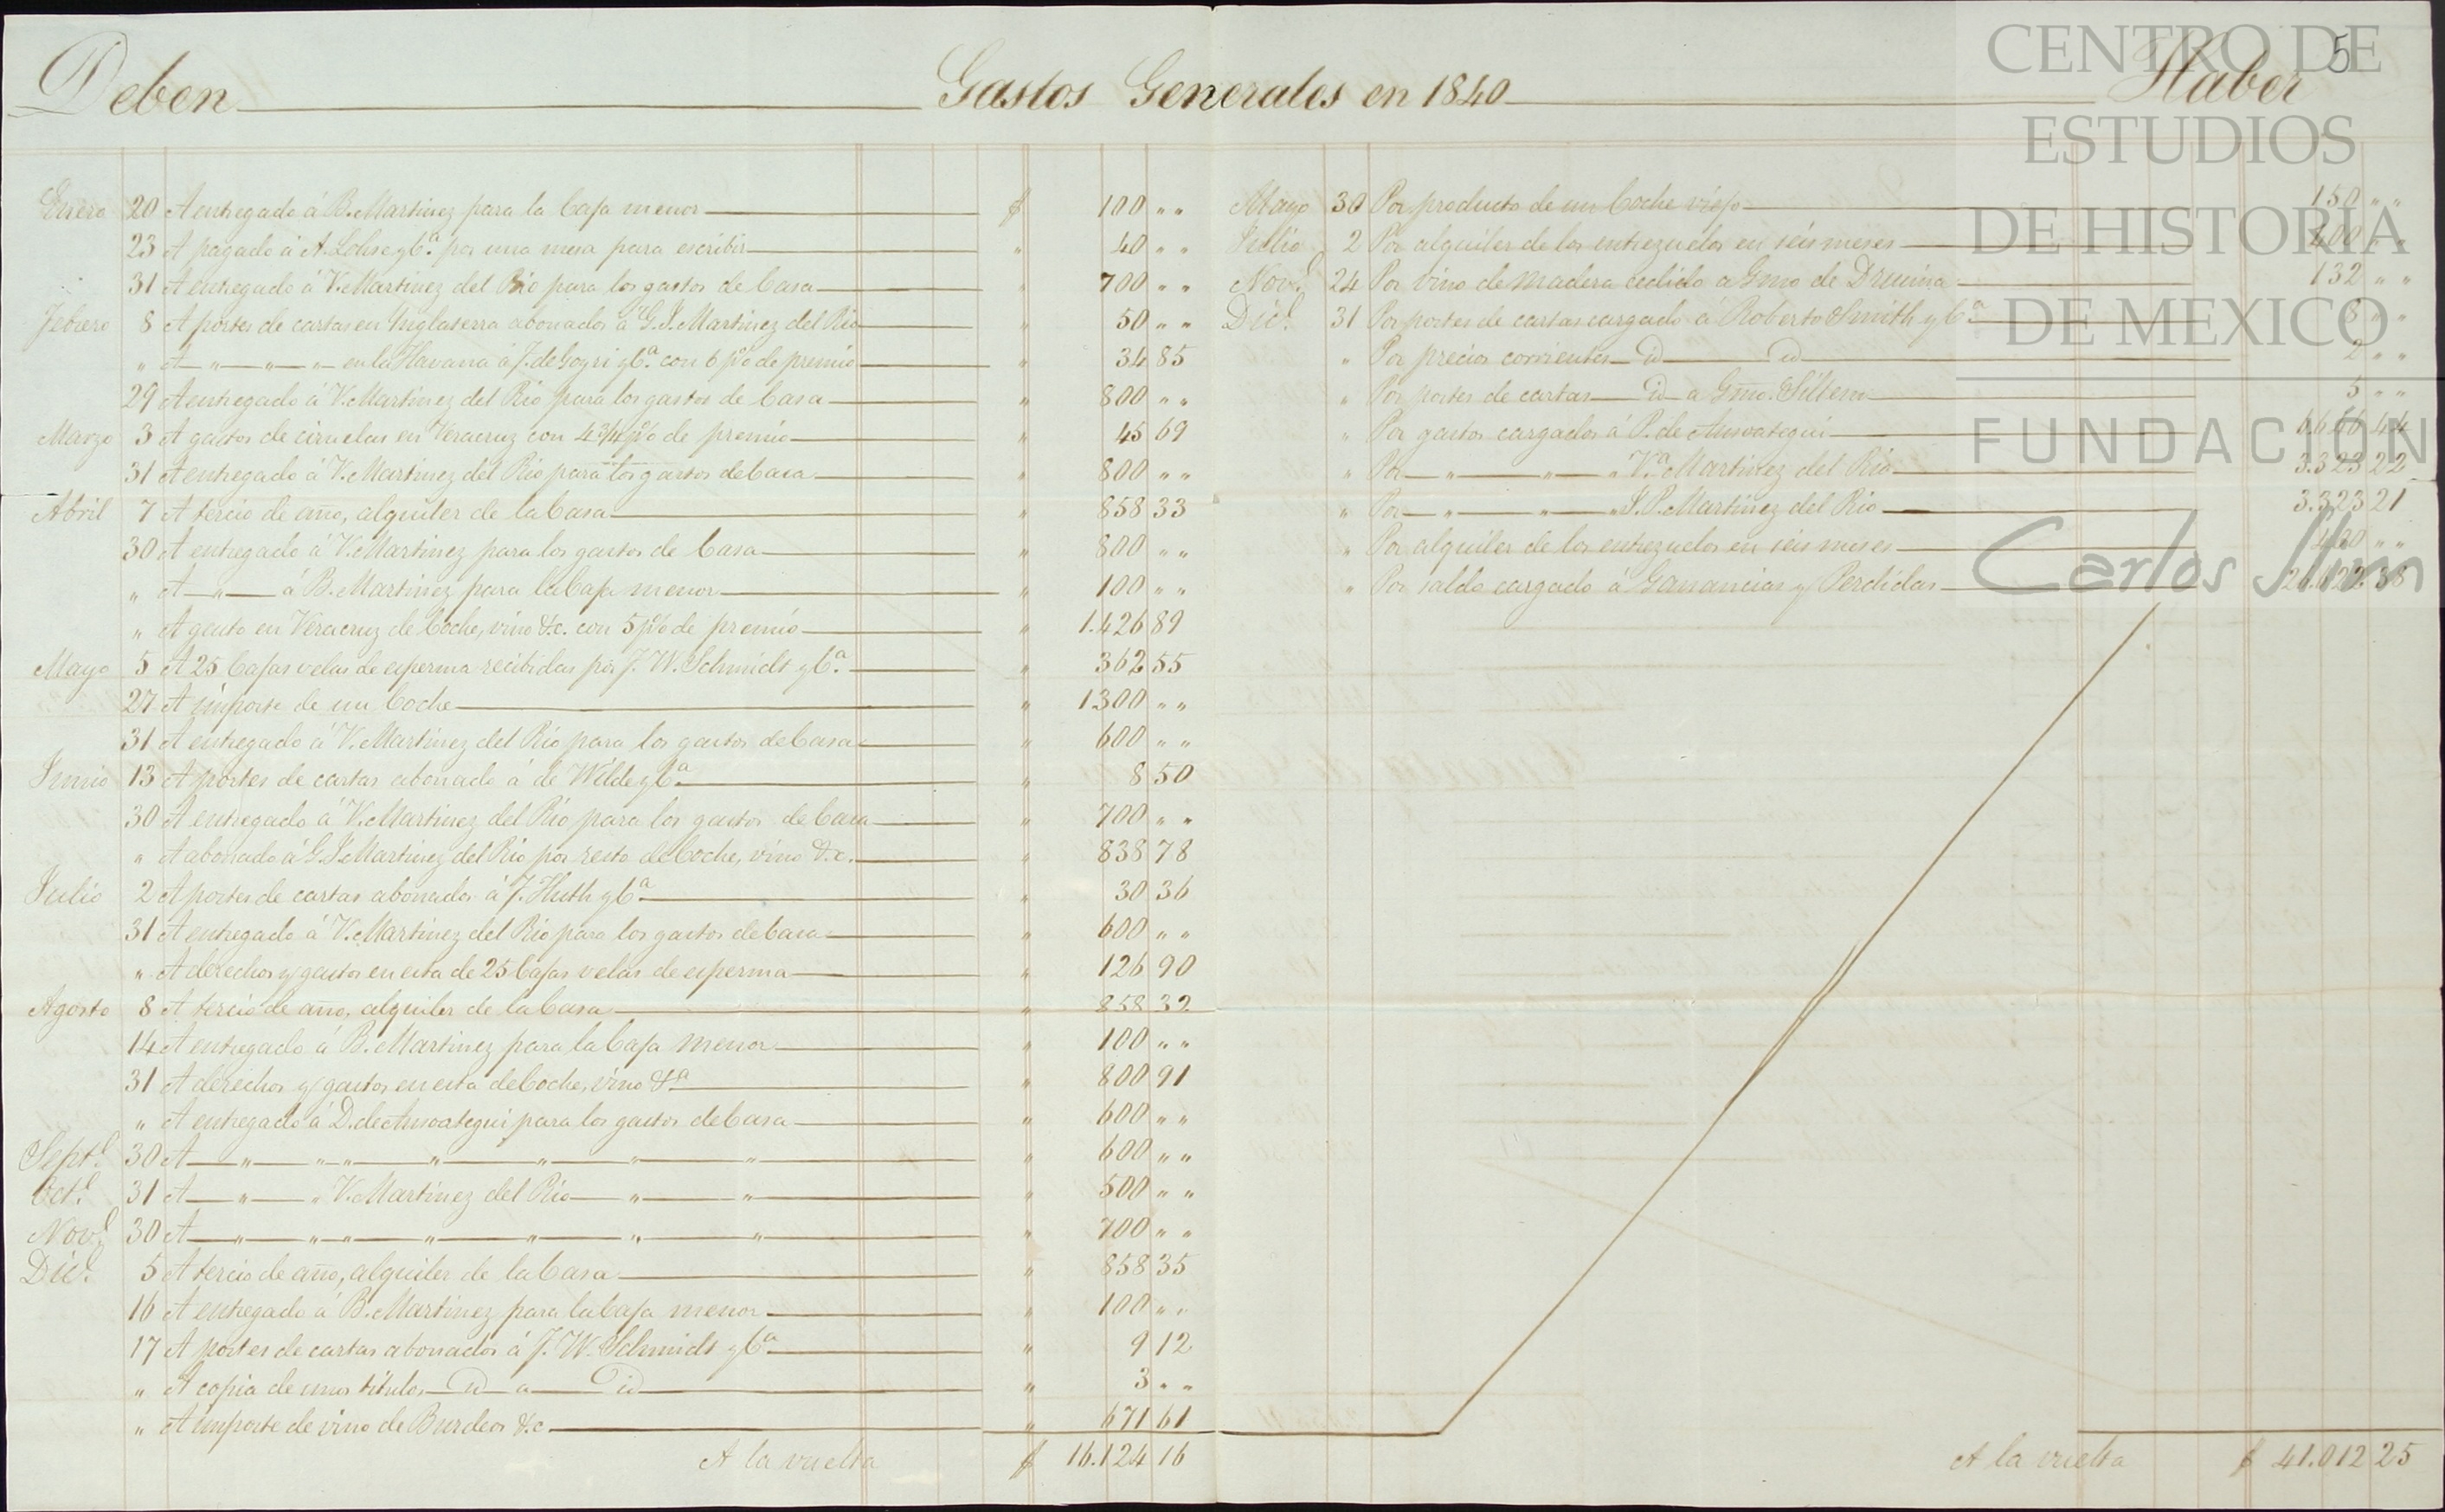 Deben Gastos Generales en 1840 Haber 5
Enero 20 A entregado á B. Martinez para la Caja menor $ 100 " "
23 A pagado á A. Lohse y Cª. por una mesa para escribir " 40 " "
31 A entregado á V. Martinez del Rio para los gastos de Casa " 700 " "
Febrero 8 A portes de cartas en Inglaterra abonados á G. J. Martinez del Rio " 50 " "
" A " " " en la Havana á J. de Goyri y Cª. con 6 p%o de premio " 34 85
29 A entregado á V. Martinez del Rio para los gastos de Casa " 800 " "
Marzo 3 A gastos de ciruelas en Veracruz con 4 3/4 p%o de premio " 45 69
31 A entregado á V. Martinez del Rio para los gastos de Casa " 800 " "
Abril 7 A tercio de año, alquiler de la Casa " 858 33
30 A entregado á V. Martinez para los gastos de Casa " 800 " "
" A " á B. Martinez para la Caja menor " 100 " "
" A gasto en Veracruz de Coche, vino &c. con 5 p%o de premio " 1.426 89
Mayo 5 A 25 Cajas velas de esperma recibidas por J. W. Schmidt y Cª. " 362 55
27 A importe de un Coche " 1300 " "
31 A entregado á V. Martinez del Rio para los gastos de Casa " 600 " "
Junio 13 A portes de cartas abonado á de Wilde y Cª " 8 50
30 A entregado á V. Martinez del Rio para los gastos de Casa " 700 " "
" A abonado á G. J. Martinez del Rio por resto de Coche, vino &c. " 838 78
Julio 2 A portes de cartas abonados á F. Huth y Cª " 30 36
31 A entregado á V. Martinez del Rio para los gastos de Casa " 600 " "
" A derechos y gastos en esta de 25 Cajas velas de esperma " 126 90
Agosto 8 A tercio de año, alquiler de la Casa " 858 32
14 A entregado á B. Martinez para la Caja menor " 100 " "
31 A derechos y gastos en esta de Coche, vino &ª " 800 91
" A entregado á D. de Ansoategui para los gastos de Casa " 600 " "
Septe. 30 A " " " " " " " " 600 " "
Octe. 31 A " " V. Martinez del Rio " " " 500 " "
Nove. 30 A " " " " " " " " 700 " "
Dice. 5 A tercio de año, alquiler de la Casa " 858 35
16 A entregado á B. Martinez para la Caja menor " 100 " "
17 A portes de cartas abonados á J. W. Schmidt y Cª " 9 12
" A copia de unos titulos id a id " 3 " "
" A importe de vino de Burdeos &c. " 671 61
A la vuelta $ 16.124 16
Mayo 30 Por producto de un Coche viejo 150 " "
Julio 2 Por alquiler de los entrezuelos en seis meses 400 " "
Nove. 24 Por vino de Madera cedido a Gmo de Drusina 132 " "
Dice. 31 Por portes de cartas cargado á Roberto Smith y Cª 8 " "
" Por precios corrientes id id 2 " "
" Por portes de cartas id a Gmo. Sillem 5 " "
" Por gastos cargados á P. de Ansoategui 6646 44
" Por " " " Vª. Martinez del Rio 3.323 22
" Por " " " J. P. Martinez del Rio 3.323 21
" Por alquiler de los entrezuelos en seis meses 400 " "
" Por saldo cargado á Ganancias y Perdidas 26.622 38
A la vuelta $ 41.012 25
CENTRO DE
ESTUDIOS
DE HISTORIA
DE MEXICO
FUNDACIÓN
Carlos Slim